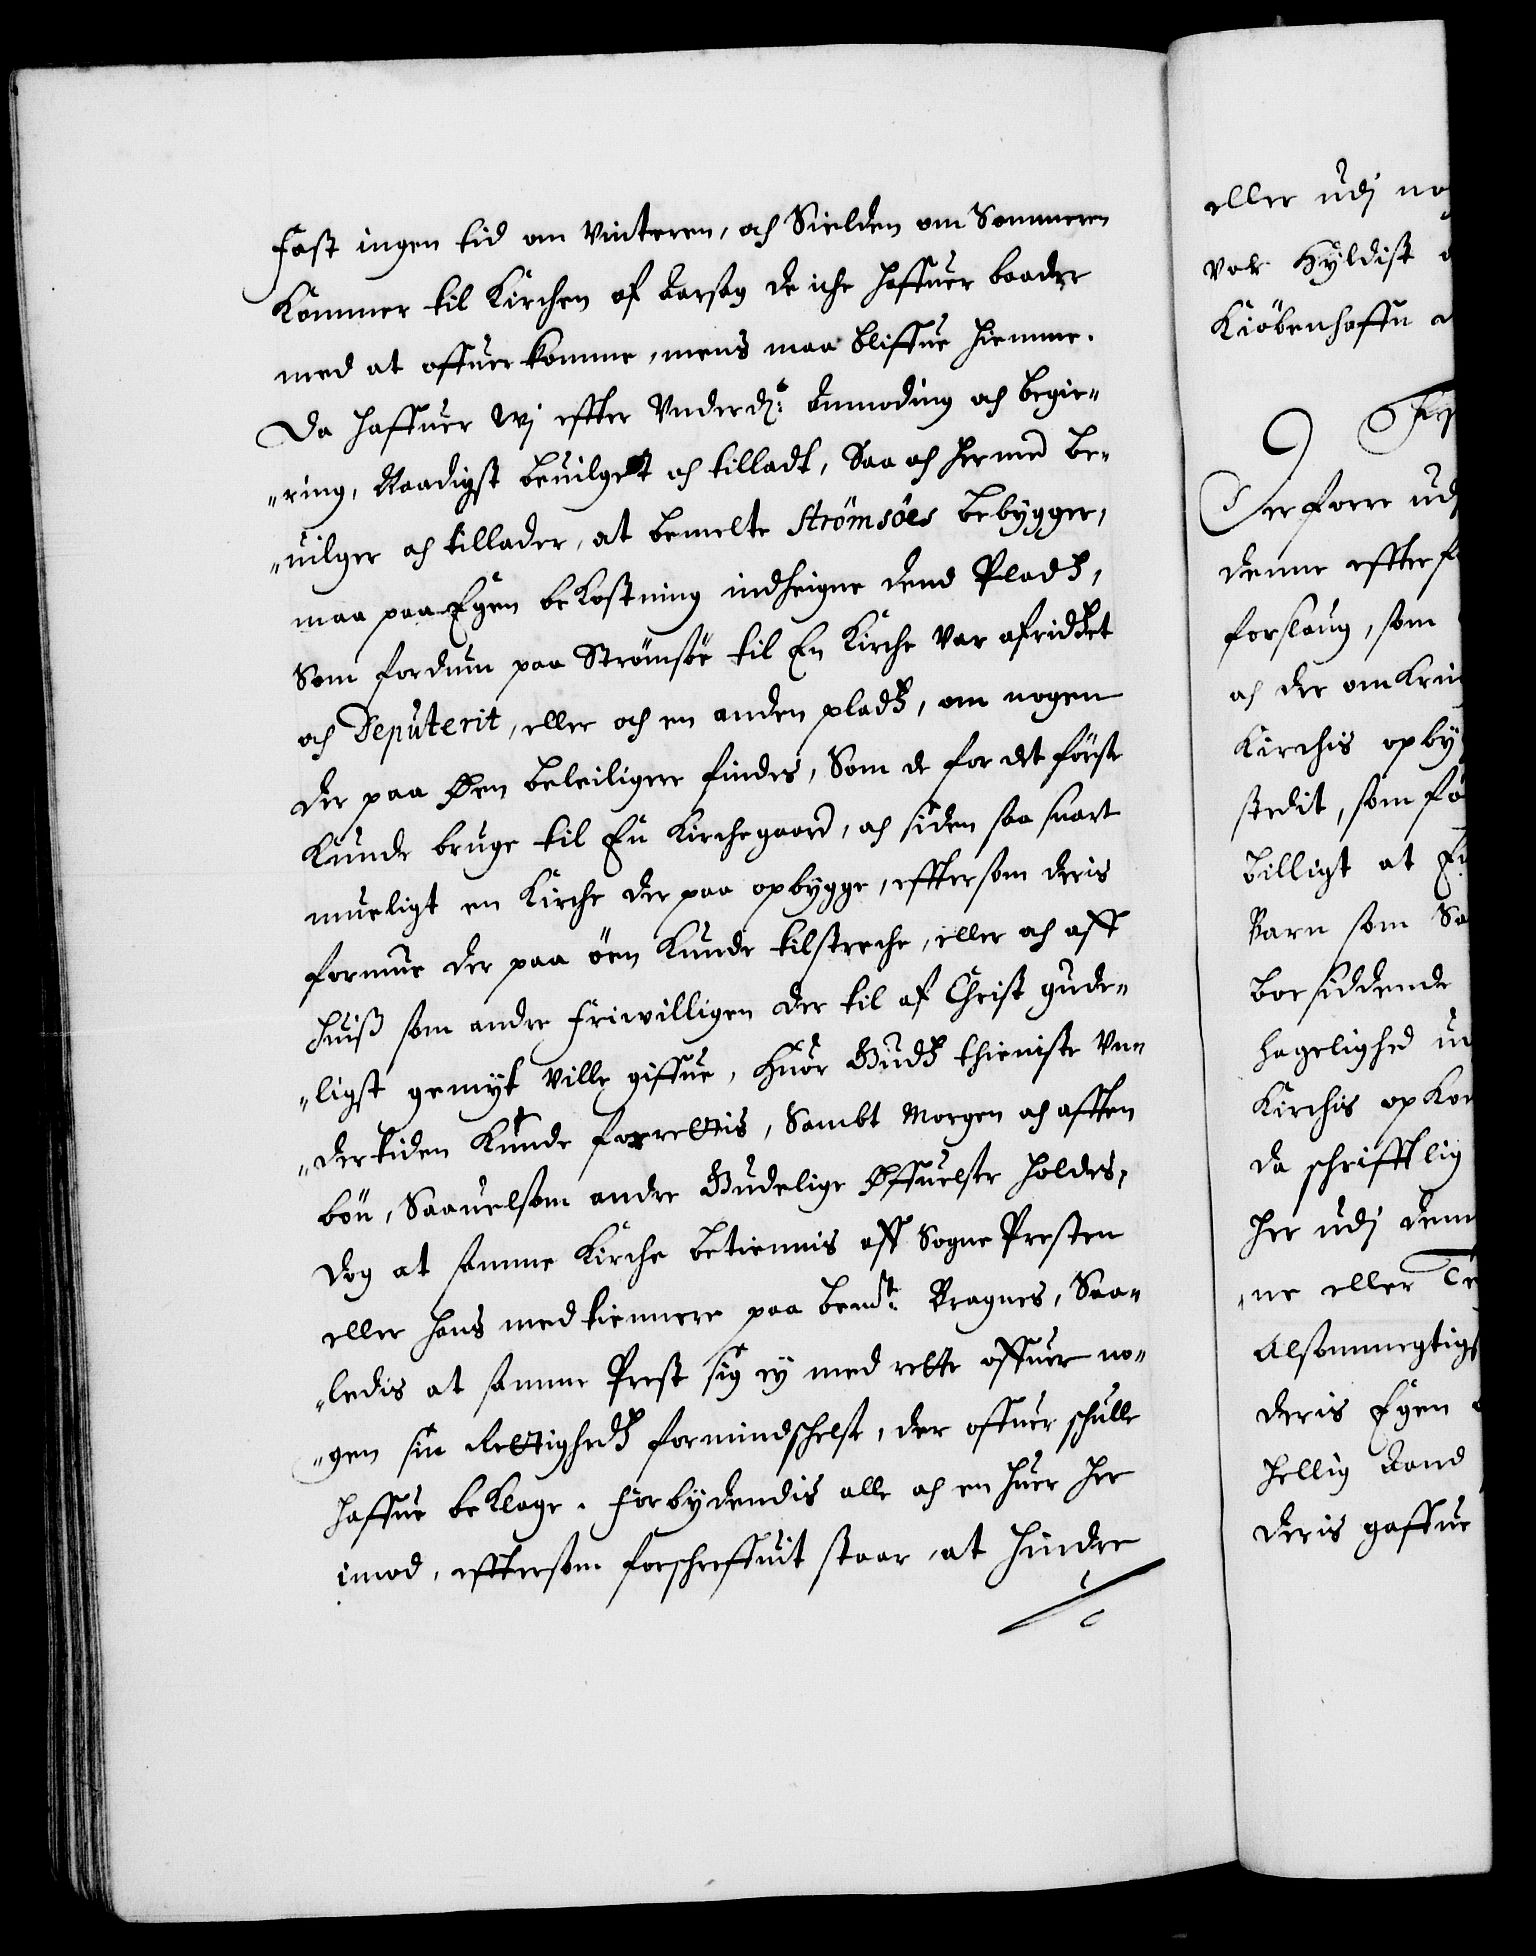 fast ingen tid om Vinteren, och Sielden om Sommeren
Kommer til Kirchen af Aarsag de iche haffuer baader
med at offuerkomme, mens maa bliffue hiemme.
Da haffuer Wj efter Vnderd: Anmoding och begie„
„ring, Naadigst beuilget och tilladt, Saa och hermed be„
„uilger och tillader, at bemelte Strømsöes bebygger,
maa paa Egen bekostning indheigne dend Pladtz,
Som fordum paa Strømsöe til En Kirche var afriddet
och Deputerit, eller och en anden pladtz, om nogen
der paa Øen beleiligere findes, Som de for det förste
kunde bruge til En Kirchegaard, och siden saa snart
mueligt en Kirche der paa opbygge, efftersom deris
formue der paa öen kunde tilstreche, eller och aff
huis som andre friwilligen der til af Christ gude„
„ligst gemyt ville giffue, huor Gudtz thieniste Vn„
„dertiden kunde forrettis, Sambt Morgen och afften
bön, Saauelsom andre Gudelige Øffuelser holdes,
dog at samme Kirche betiennis aff Sogne Presten
eller hans medtiennere paa bem.te Bragnes, Saa„
„ledis at samme Prest sig ey med rette offuer no„
„gen sin Rettighedtz formindschelse, der offuer schulle
haffue beklage. Forbydendis alle och en huer her
imod, efftersom forschreffuit staar, at hindre
eller udj no
vor Hyldist
Kiöbenhaffn

denne effterf
forslaug, som
och der omkrin
Kirchis opby
stedit, som fö
billigt at
Barn som Sa
boesiddende
hagelighed
Kirchis opkom
da schrifftlig
her udj denn
„ne eller
Alsommegtigs
deris Egen
hellig Aand
deris gaffue